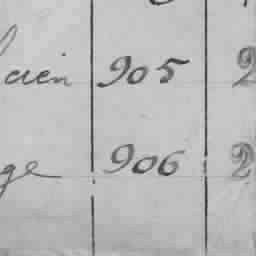 cien 905 2
ge 906 2